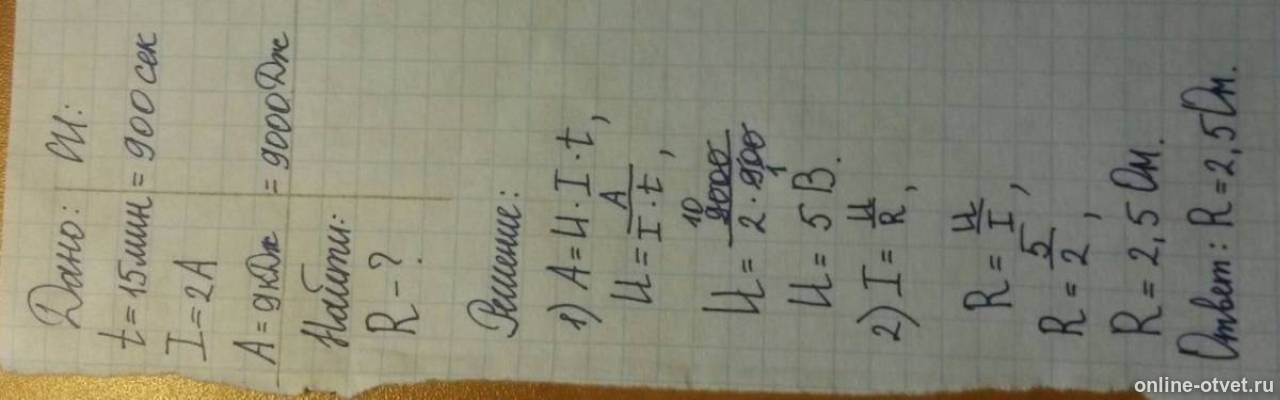 Дано: СИ:
t = 15мин = 900 сек
I = 2А
A = 9кДж = 9000Дж
Найти:
R - ?
Решение:
1) A = U · I · t,
U = A / I · t,
U = 9000 10 / 2 · 900 1
U = 5 В.
2) I = U / R,
R = U / I,
R = 5 / 2,
R = 2,5 Ом.
Ответ: R = 2,5 Ом.
online-otvet.ru